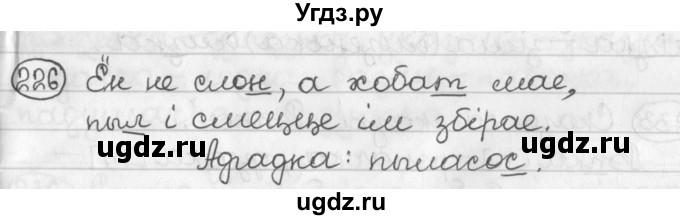 Угдз.ру
226 Ён не слон, а хобат мае,
пыл і смецце ім збірае.
ugdz.ru ugdz.ru
Адгадка: пыласос.
ugdz.ru